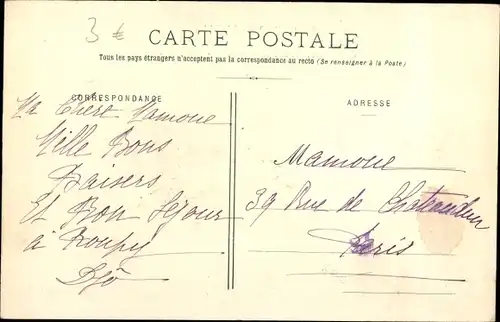 3 €
CARTE POSTALE
Tous les pays étrangers n'acceptent pas la correspondance au recto (Se renseigner à la Poste)
CORRESPONDANCE
ADRESSE
Ma Chère Mamoue
Mille Bons
Baisers
Et Bon Séjour
à
Mamoue
39 Rue de Chateaudun
Paris